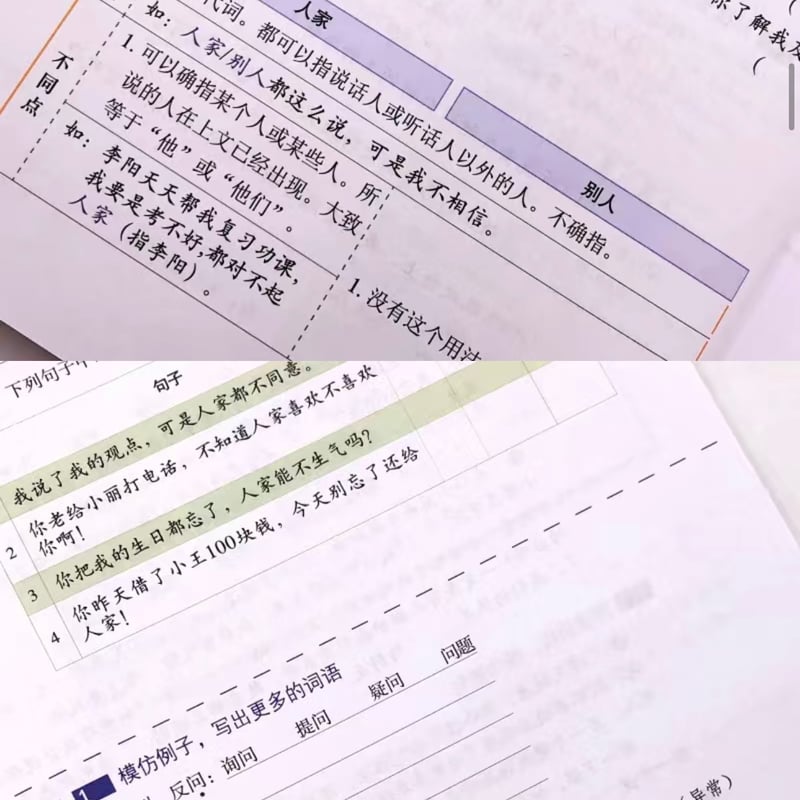 人家
别人
代词。都可以指说话人或听话人以外的人。不确指。
如：人家/别人都这么说，可是我不相信。
不同点
1. 可以确指某个人或某些人。所
说的人在上文已经出现。大致
等于“他”或“他们”。
如：李阳天天帮我复习功课，
我要是考不好，都对不起
人家（指李阳）。
1. 没有这个用法
你了解我及
（
下列句子中
句子
我说了我的观点，可是人家都不同意。
2 你老给小丽打电话，不知道人家喜欢不喜欢
你啊！
3 你把我的生日都忘了，人家能不生气吗？
4 你昨天借了小王100块钱，今天别忘了还给
人家！
1 模仿例子，写出更多的词语
反问：询问 提问 疑问 问题
（异常）